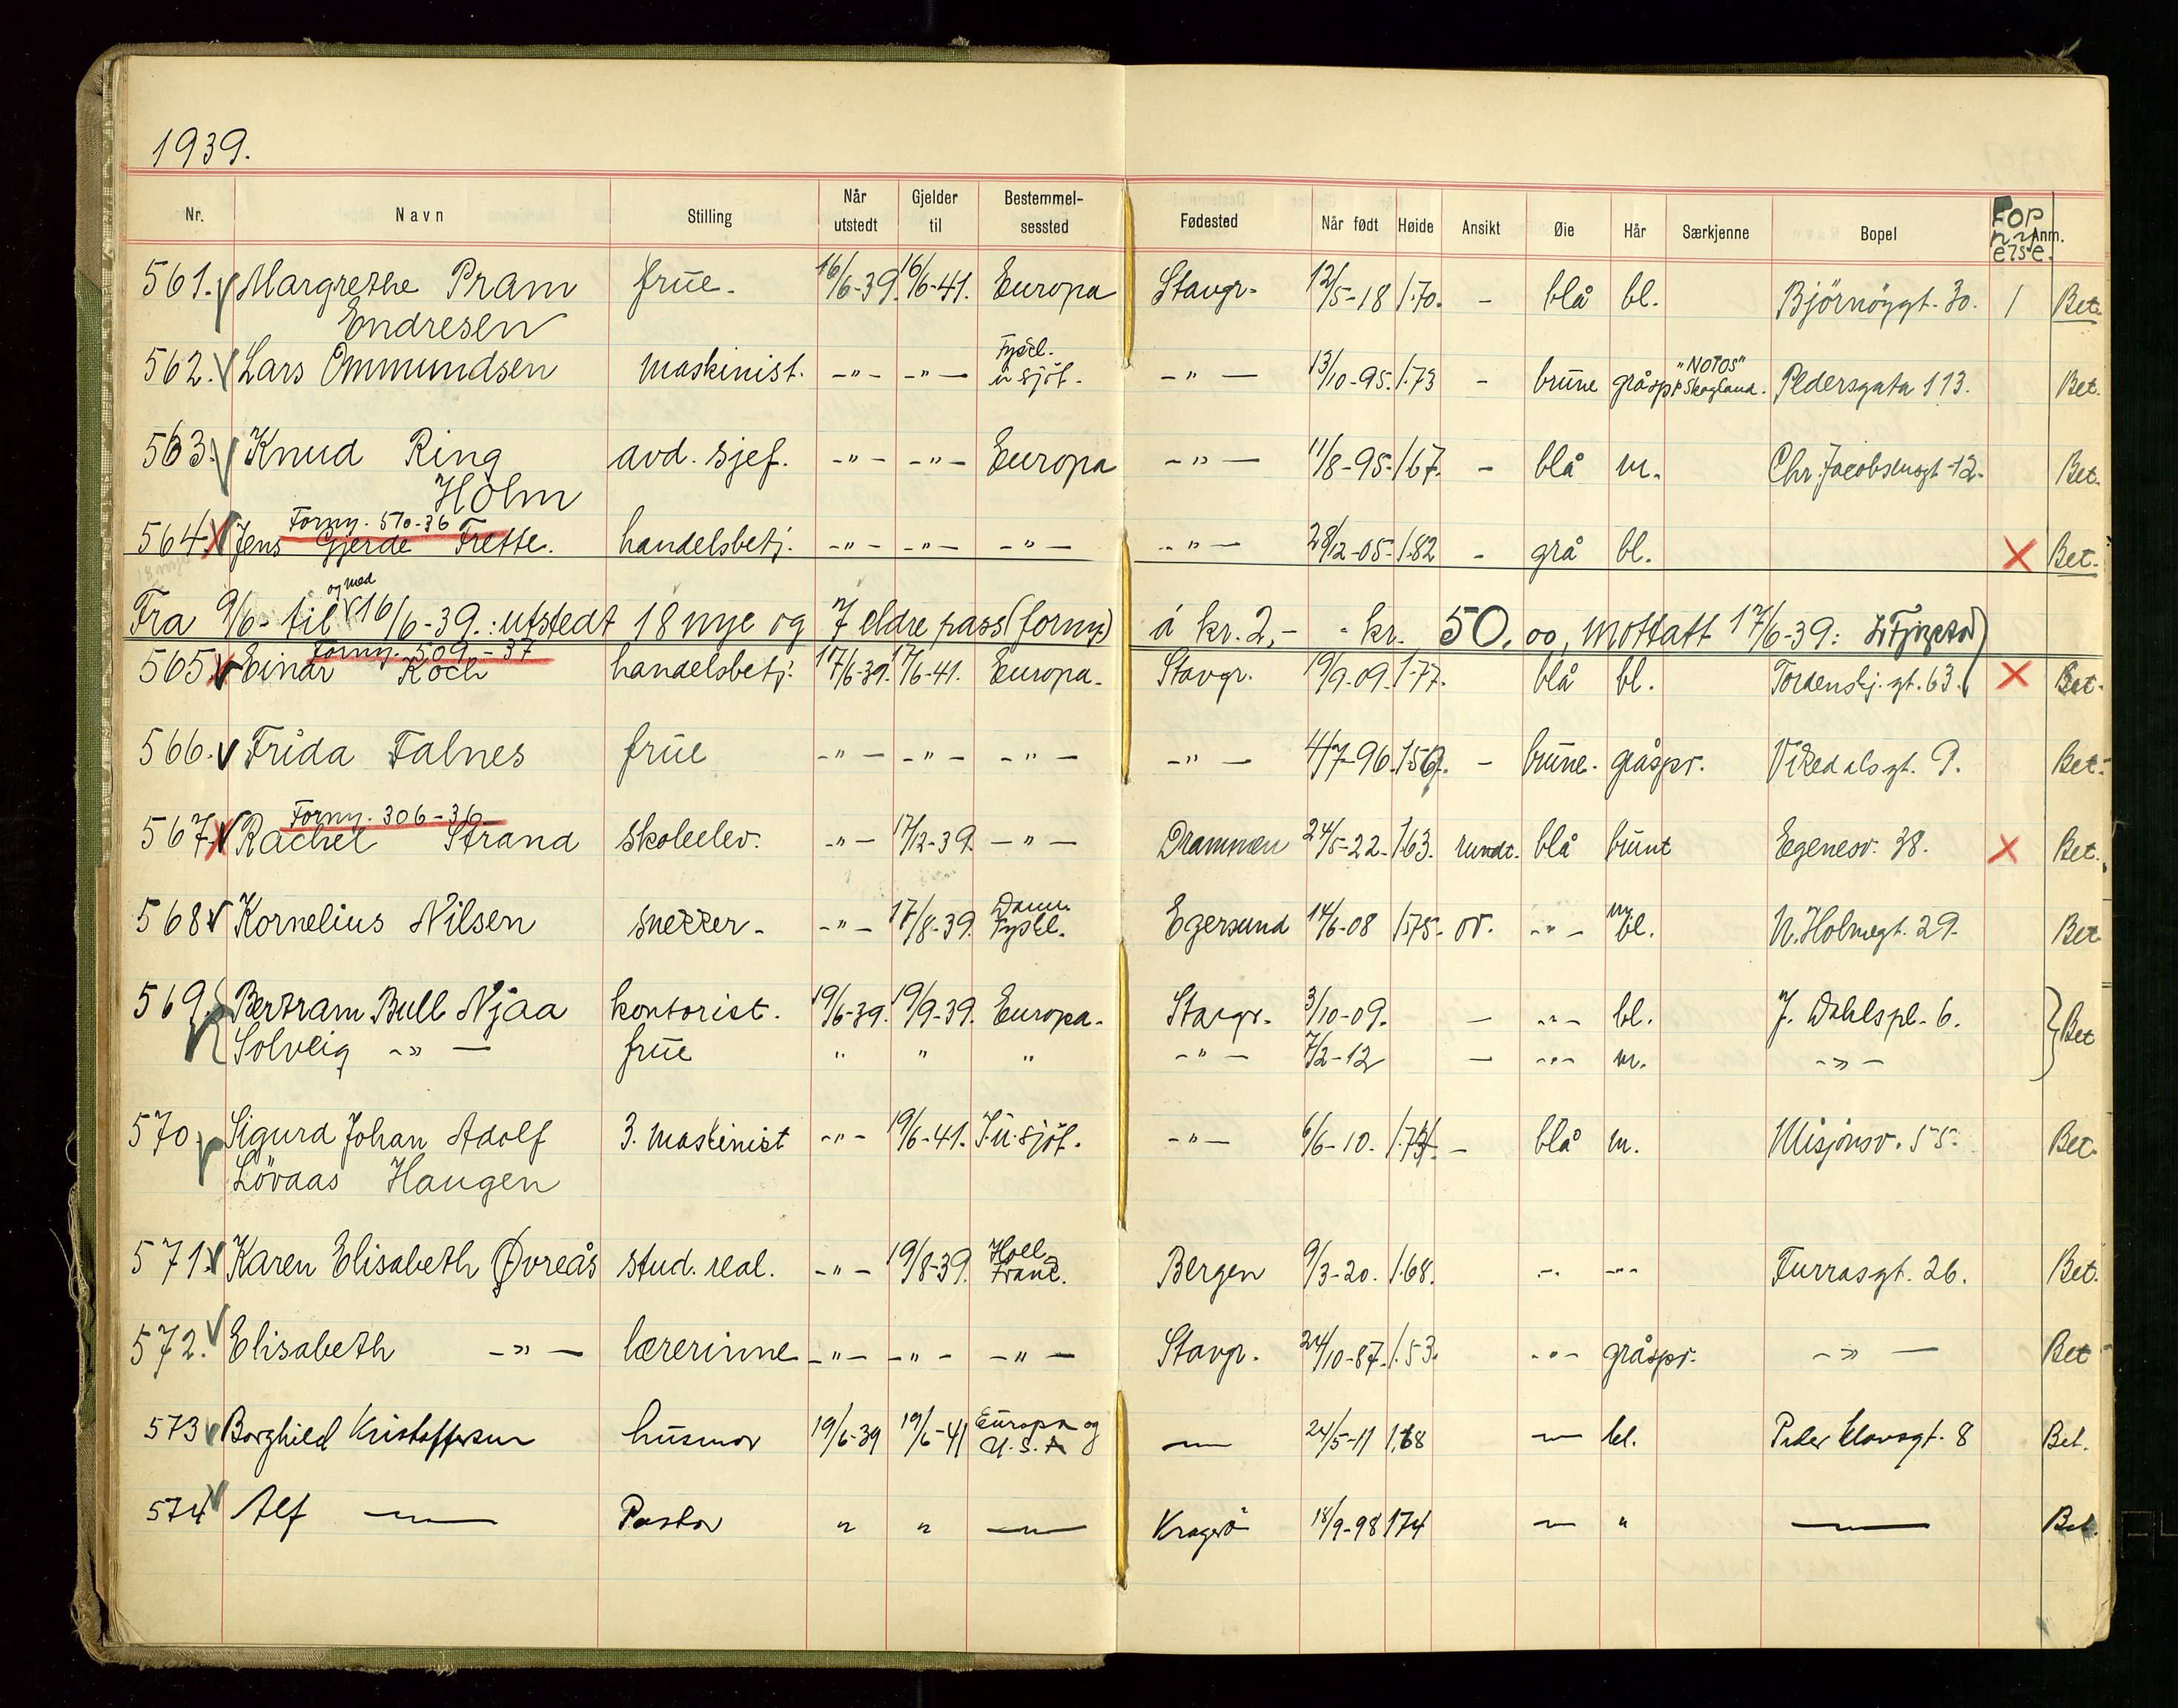 1939.
Nr. Navn Stilling Når utstedt Gjelder til Bestemmel-sessted Fødested Når født Høide Ansikt Øie Hår Særkjenne Bopel Fornyelse. Anm.
561. Margrethe Pram frue. 16/6-39. 16/6-41. Europa Stavgr. 12/5-18 1.70. - blå bl. Björnöygt. 30. / Bet.
Endresen
562. Lars Ommundsen maskinist. -"- -"- Tyskl. u sjöf. -"- 13/10-95. 1.73 - brune gråspr "NOTOS" Skogland. Pedersgata 113. Bet.
563. Knud Ring avd. sjef. -"- -"- Europa -"- 11/8-95. 1.67. - blå m. Chr. Jacobsensgt. 12. Bet.
Holm
Forny. 570-36
564 Jens Gjerde Frette. handelsbetj. -"- -"- -"- -"- 28/12-05. 1.82 - grå bl. X Bet.
og med
Fra 9/6- til 16/6-39.: utstedt 18 nye og 7 eldre pass (forny) á kr. 2,- - kr. 50.00, mottatt 17/6-39:
Forny. 509-37
565 Einar Koch handelsbetj. 17/6-39. 17/6-41. Europa. Stavgr. 19/9-09. 1.77. blå bl. Tordenskj. gt. 63. X Bet.
566. Frida Falnes frue -"- -"- -"- -"- 4/7-96. 1.56. - brune. gråspr. Vikedalsgt. 9. Bet.
Forny. 306-36
567. Rachel Strand skoleelev. -"- 17/12-39. -"- Drammen 24/5-22. 1.63. rundt. blå brunt Egenesv. 38. X Bet.
568 Kornelius Nilsen snekker. -"- 17/8-39. Danm. Tyskl. Egersund 14/6-08 1.75. ov. -"- m bl. N. Holmegt. 29. Bet
569. Bertram Bull Njaa kontorist. 19/6-39. 19/9-39. Europa. Stavgr. 3/10-09. - -"- bl. J. Dahlspl. 6. } Bet
Solveig -"- frue " " " -"- 7/2-12 - -"- m. -"-
570. Sigurd Johan Adolf 3. maskinist -"- 19/6-41. I.u.sjöf. -"- 6/6-10. - blå m. Misjonsv. 55. Bet.
Lövaas Haugen
571. Karen Elisabeth Øvreås stud. real. -"- 19/8-39. Holl. Frank. Bergen 9/3-20. 1.68. -"- -"- Furrasgt. 26. Bet.
572. Elisabeth -"- lærerinne -"- -"- -"- Stavgr. 24/10-87. 1.53. -"- gråspr. -"- Bet
573 Borghild Kristoffersen husmor 19/6-39 19/6-41 Europa og U.S.A -"- 24/5-11 1.68 -"- bl. Peder Clavsgt. 8 Bet.
574 Alf -"- Pastor " " -"- Kragerö 18/9-98 174 -"- " -"- Bet.